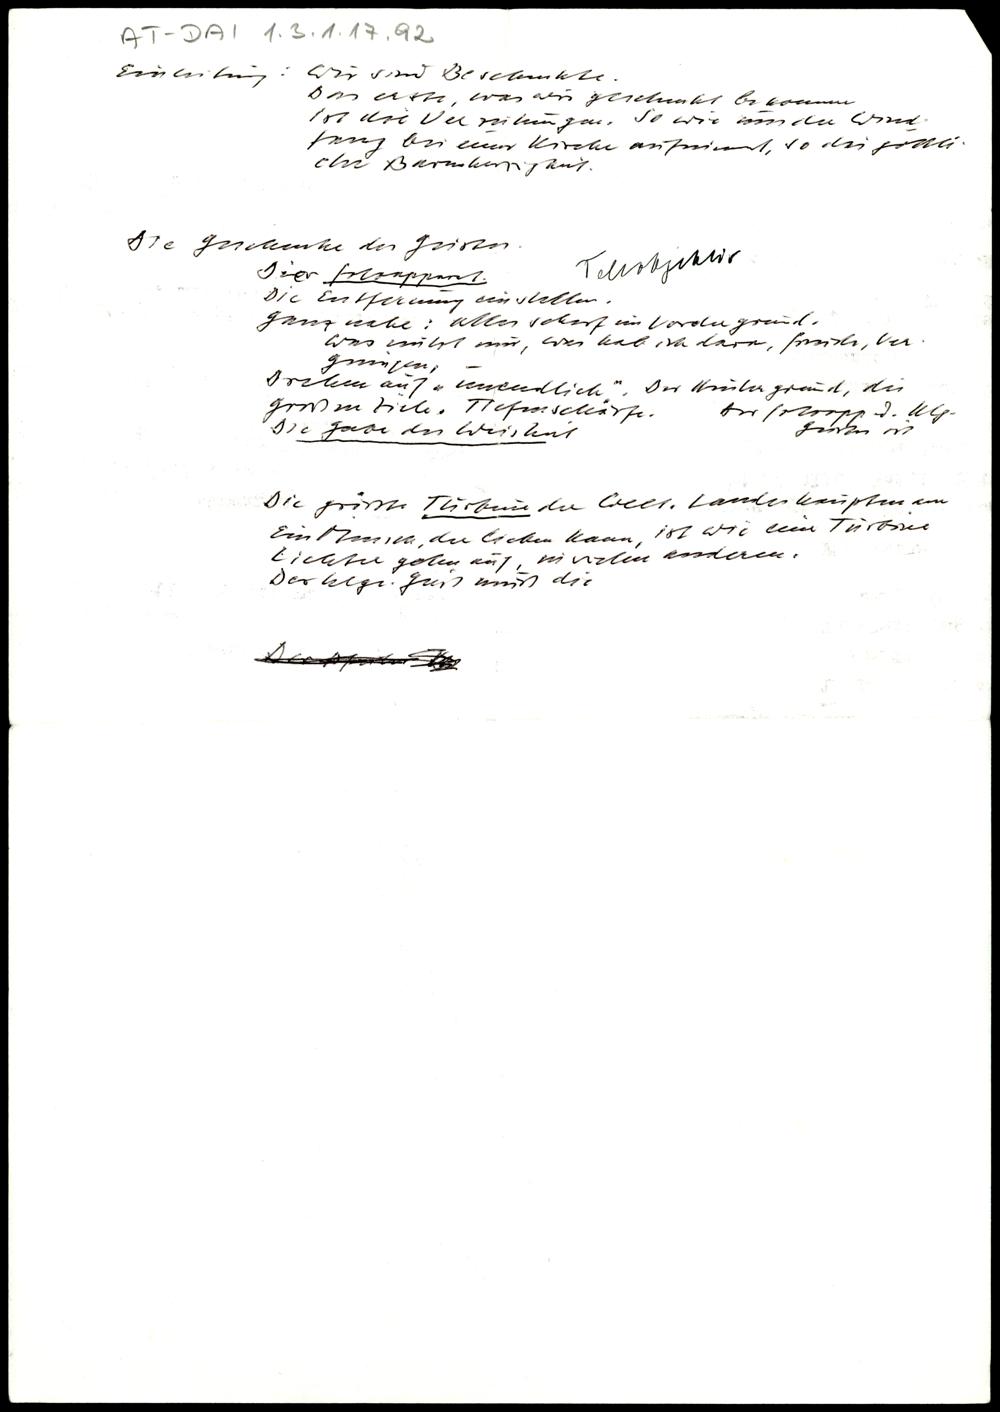 AT-DAI 1.3.1.17.92
Einleitung: Wir sind Beschenkte.
Das erste, was wir geschenkt bekommen
ist die Verzeihung. So wie uns der Wind-
fang bei einer Kirche aufnimmt, so die göttli-
che Barmherzigkeit.
Die Geschenke des Geistes.
Der Fotoapparat. Teleobjektiv
Die Entfernung einstellen.
Ganz nahe: alles scharf im Vordergrund.
Was nützt mir, was hab ich davon, Freude, Ver-
gnügen,
Drehen auf "unendlich". Der Hintergrund, die
großen Ziele. Tiefenschärfe. Der Fotoapp. d. Hlg.
Die Gabe der Weisheit Geistes ist
Die größte Turbine der Welt. Landeshauptmann
Ein Mensch, der lieben kann, ist wie eine Turbine
Lichter gehen auf, in vielen anderen.
Der hlge. Geist